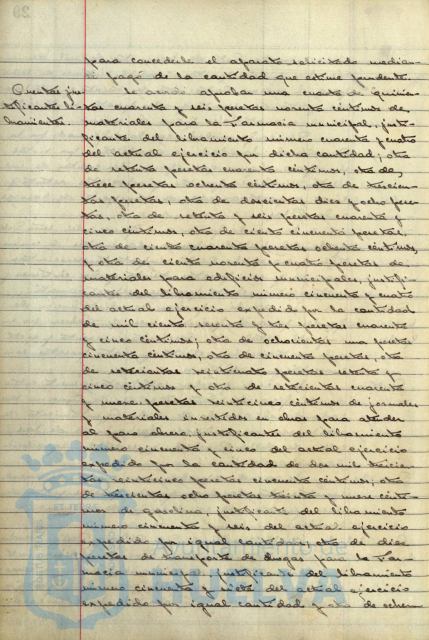 para concederle el aparato solicitado median-
te pago de la cantidad que estime prudente.
Cuentas jus-
tificantes li-
bramientos.
Se acordó aprobar una cuenta de quinien-
tas cuarenta y seis pesetas noventa céntimos de
materiales para la Farmacia municipal, justi-
ficante del libramiento número cuarenta y cuatro
del actual ejercicio por dicha cantidad; otra
de setenta pesetas cuarenta céntimos, otra de
trece pesetas ochenta céntimos, otra de trescien-
tas pesetas, otra de doscientas diez y ocho pese-
tas, otra de setenta y seis pesetas cuarenta y
cinco céntimos, otra de ciento cincuenta pesetas,
otra de ciento cuarenta pesetas ochenta céntimos,
y otra de ciento noventa y cuatro pesetas de
materiales para edificios municipales, justifi-
cantes del libramiento número cincuenta y cuatro
del actual ejercicio expedido por la cantidad
de mil ciento sesenta y tres pesetas cuarenta
y cinco céntimos; otra de ochocientas una pesetas
cincuenta céntimos, otra de cincuenta pesetas, otra
de setecientas veinticuatro pesetas setenta y
cinco céntimos y otra de setecientas cuarenta
y nueve pesetas veinticinco céntimos de jornales
y materiales invertidos en obras para atender
al paro obrero, justificantes del libramiento
número cincuenta y cinco del actual ejercicio
expedido por la cantidad de dos mil trescien-
tas veinticinco pesetas cincuenta céntimos; otra
de trescientas ocho pesetas treinta y nueve cénti-
mos de gasolina, justificante del libramiento
número cincuenta y seis del actual ejercicio
expedido por igual cantidad; otra de diez
pesetas de transporte de drogas para la Far-
macia municipal, justificante del libramiento
número cincuenta y siete del actual ejercicio
expedido por igual cantidad y otra de ochen